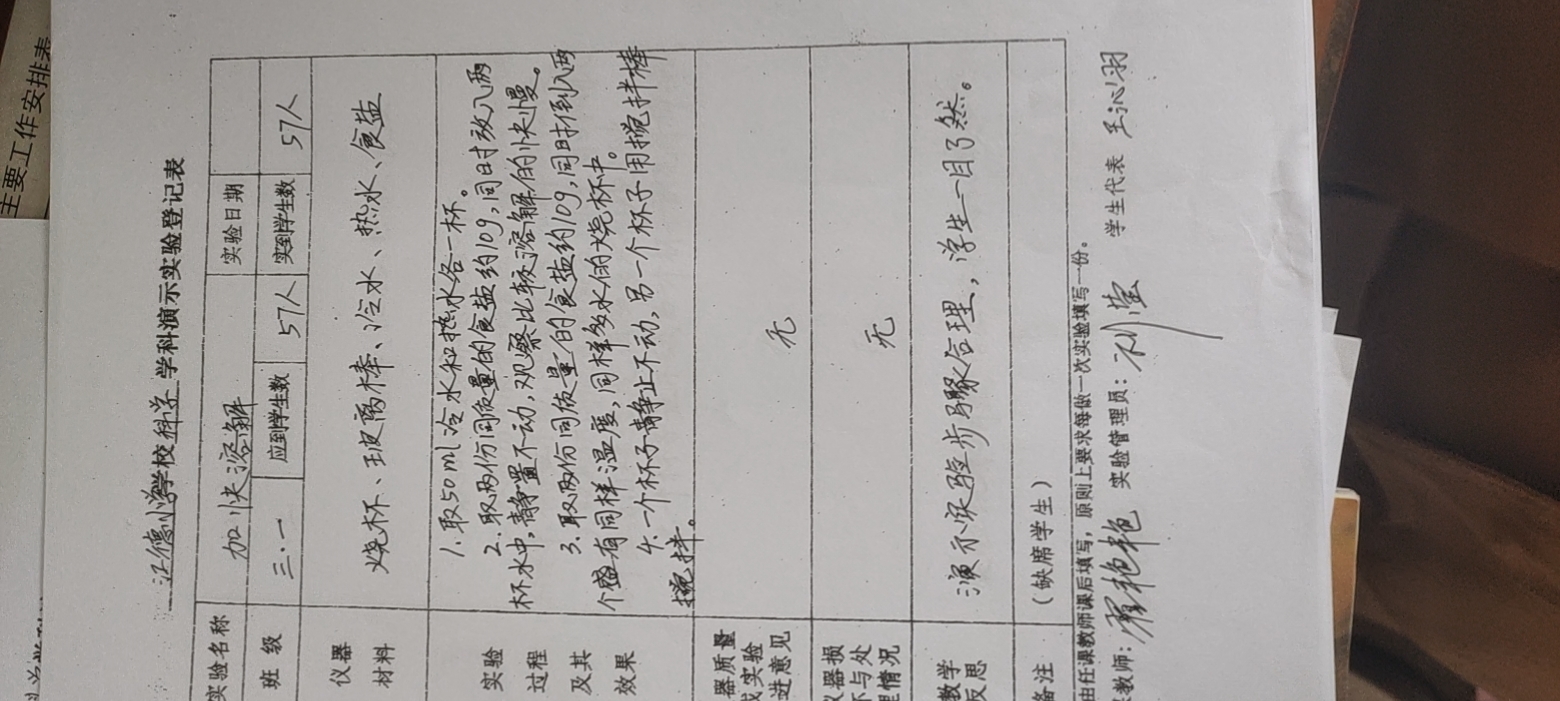 主要工作安排表
江德小学学校科学学科演示实验登记表
实验名称 加快溶解 实验日期
班级 三.一 应到学生数 57人 实到学生数 57人
仪器
材料
烧杯、玻离棒、冷水、热水、食盐
实验
过程
及其
效果
1.取50ml冷水和热水各一杯。
2.取两份同质量的食盐约10g,同时放入两
杯水中,静置不动,观察比较溶解的快慢。
3.取两份同质量的食盐约10g,同时倒入两
个盛有同样温度,同样多水的烧杯中。
4.一个杯子静止不动,另一个杯子用搅拌棒
搅拌。
器质量
或实验
进意见
无
仪器损
坏与处
理情况
无
教学
反思
演示实验步骤合理,学生一目了然。
备注 (缺席学生)
由任课教师课后填写,原则上要求每做一次实验填写一份。
教师: 艳艳 实验管理员: 学生代表 王沁羽